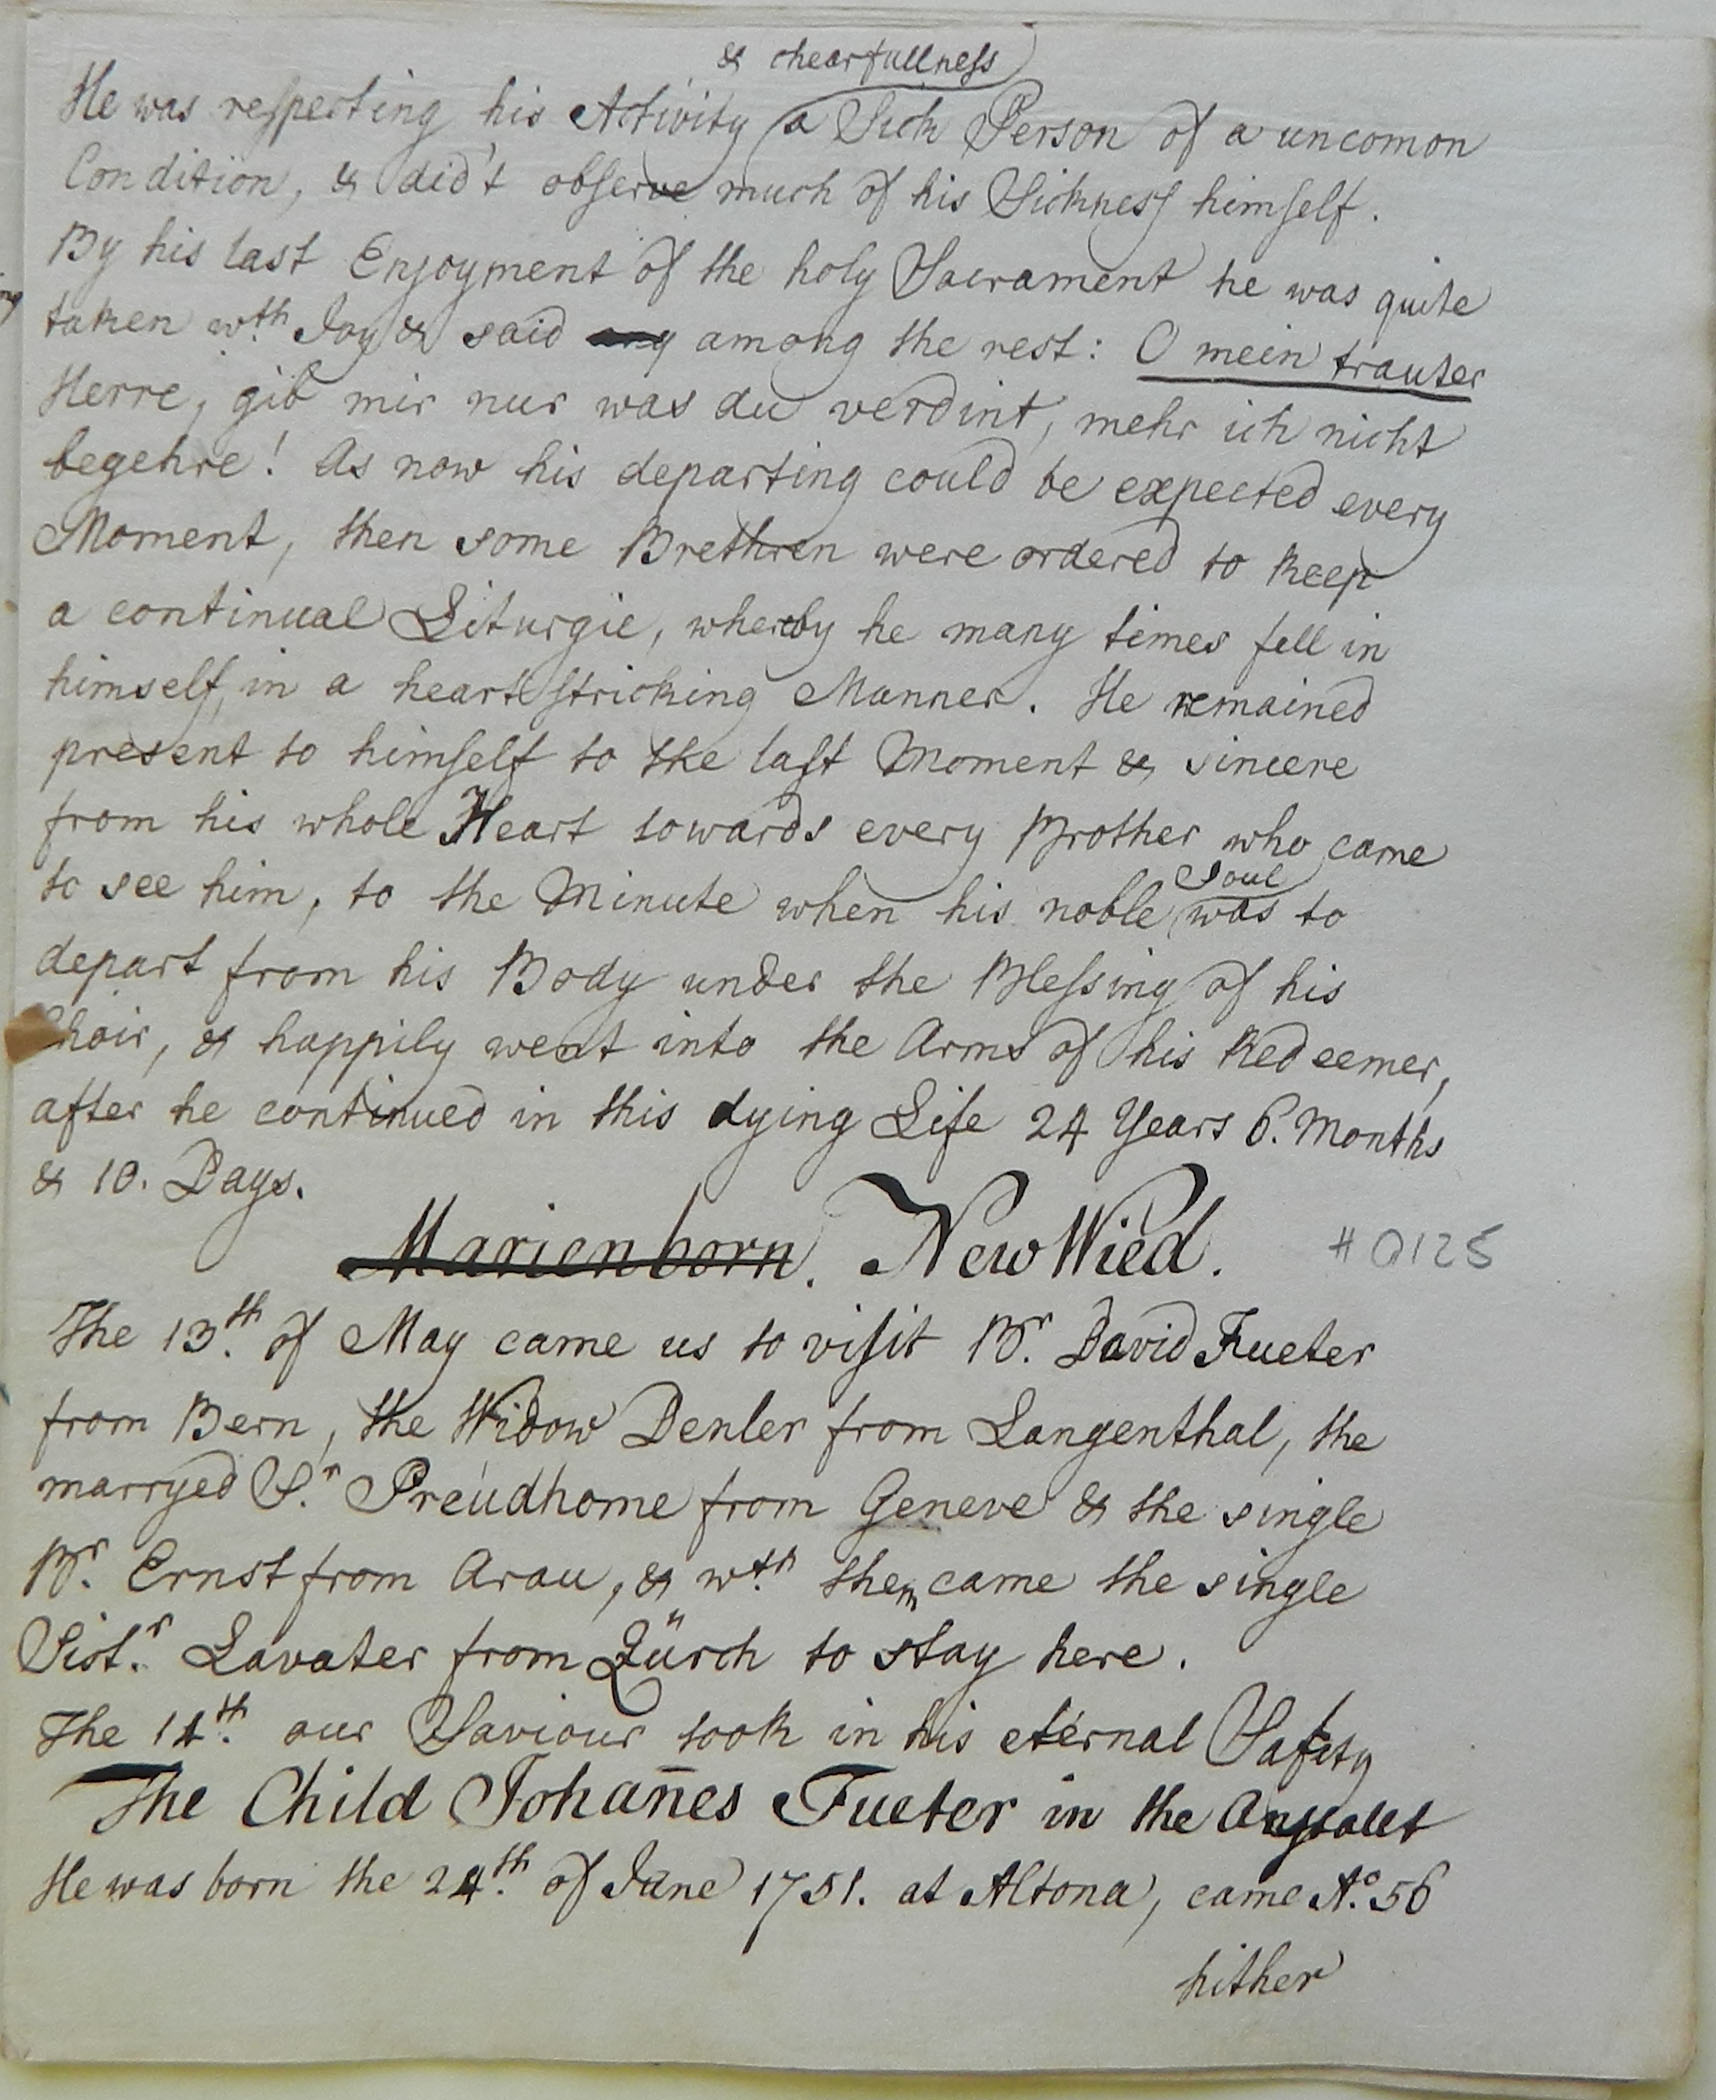 & chearfullness
He was respecting his Activity a Sick Person of a uncomon
Condition, & did't observe much of his Sickness himself.
By his last Enjoyment of the holy Sacrament he was quite
taken wth. Joy & said any among the rest: O mein trauter
Herre, gib mir nur was du verdint, mehr ich nicht
begehre! As now his departing could be expected every
Moment, then some Brethren were ordered to keep
a continual Liturgie, whereby he many times fell in
himself, in a heart stricking Manner. He remained
present to himself to the last Moment & sincere
from his whole Heart towards every Brother who came
Soul
to see him, to the Minute when his noble was to
depart from his Body under the Blessing of his
Choir, & happily went into the Arms of his Redeemer,
after he continued in this dying Life 24 Years 6. Months
& 10. Days.
Marienborn. New Wied. #0125
The 13th. of May came us to visit Br. David Fueter
from Bern, the Widow Denler from Langenthal, the
marryed Sr. Preudhome from Geneve & the single
Br. Ernst from Arau, & wth. them came the single
Sistr. Lavater from Zürch to stay here.
The 14th. our Saviour took in his eternal Safety
The Child Johan̄es Fueter in the Anstalt
He was born the 24th. of June 1751. at Altona, came Ao. 56
hither